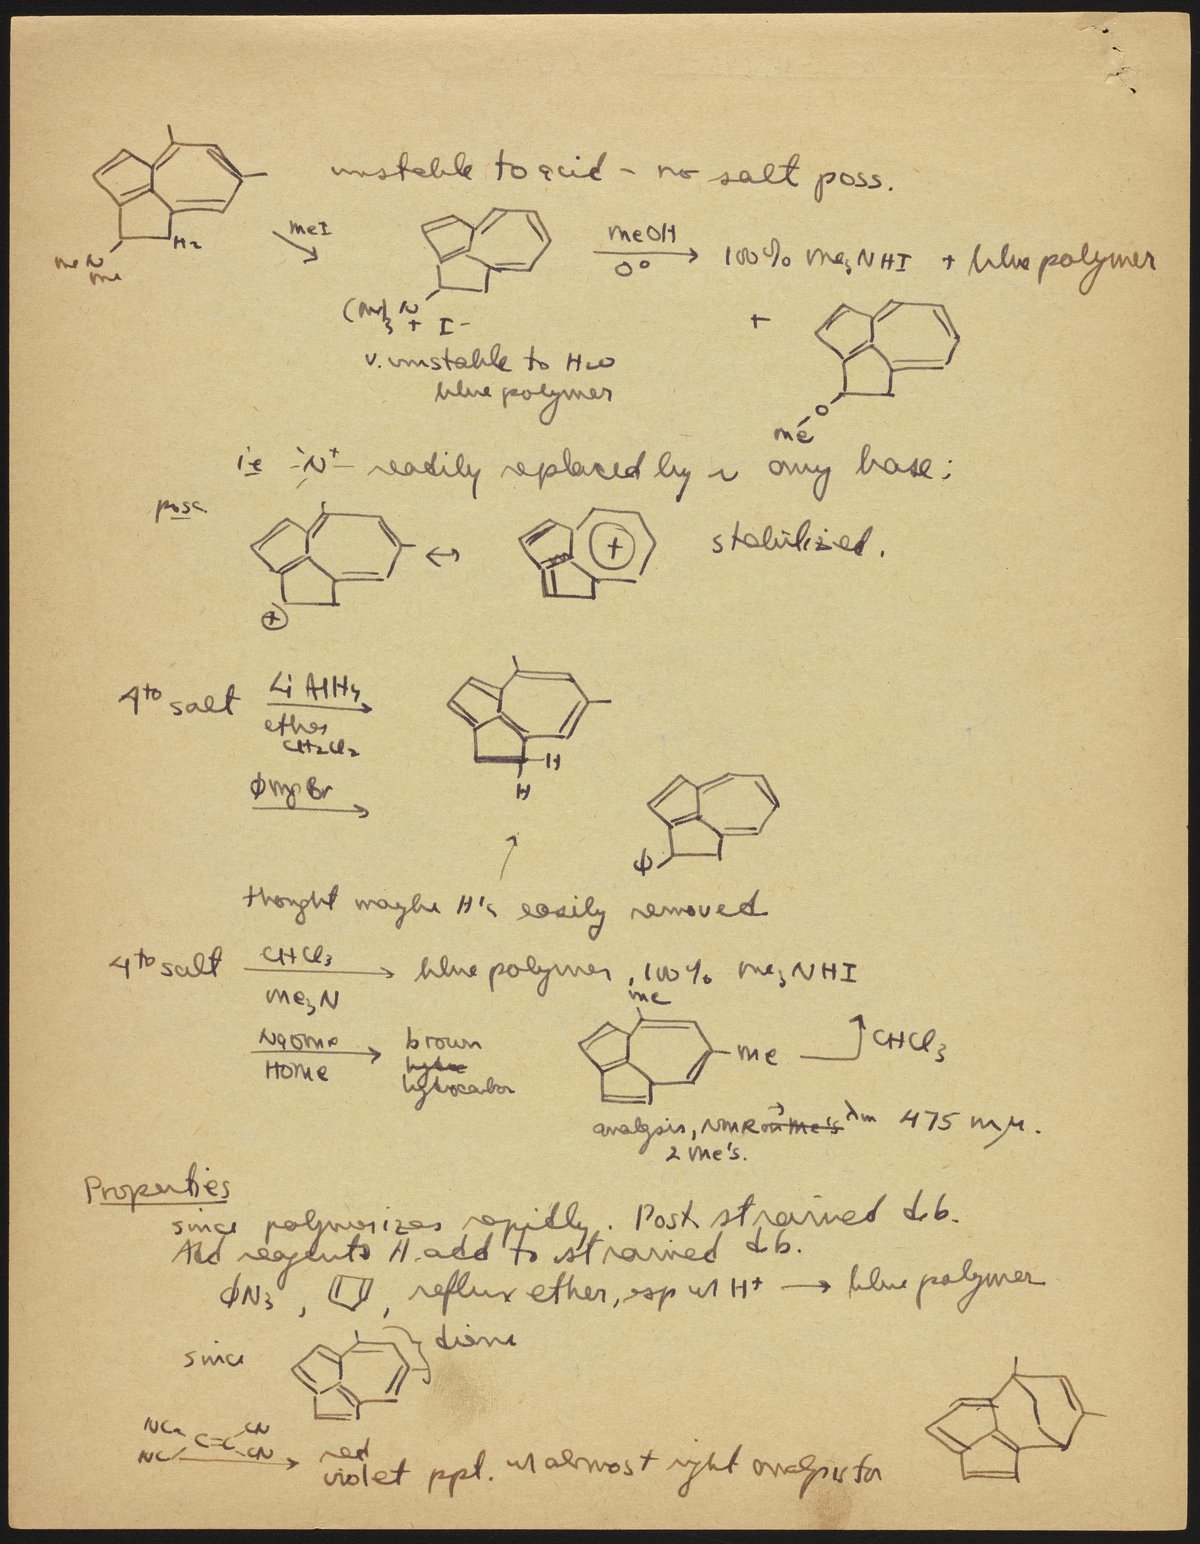 unstable to acid – no salt poss.
H2
me N
me
meI
meOH
0°
100% me3NHI + blue polymer
(me)3 N
+ I-
+
v. unstable to H2O
blue polymer
O
me
i.e -N+- readily replaced by any base:
poss.
+
↔
+
stabilized.
4to salt
Li AlH4
ether
CH2Cl2
H
H
ϕ mg Br
ϕ
thought maybe H's easily removed
4to salt
CHCl3
me3N
blue polymer, 100% me3NHI
NaOme
HOme
brown
hydrocarbon
me
me
CHCl3
analysis, NMR λm 475 mμ.
2 me's.
Properties
since polymerizes rapidly. Post strained d.b.
All reagents H add to strained d.b.
ϕN3, , reflux ether, esp w H+ → blue polymer
since
diene
NC
CN
C=C
NC
CN
red
violet ppt. w almost right analysis for